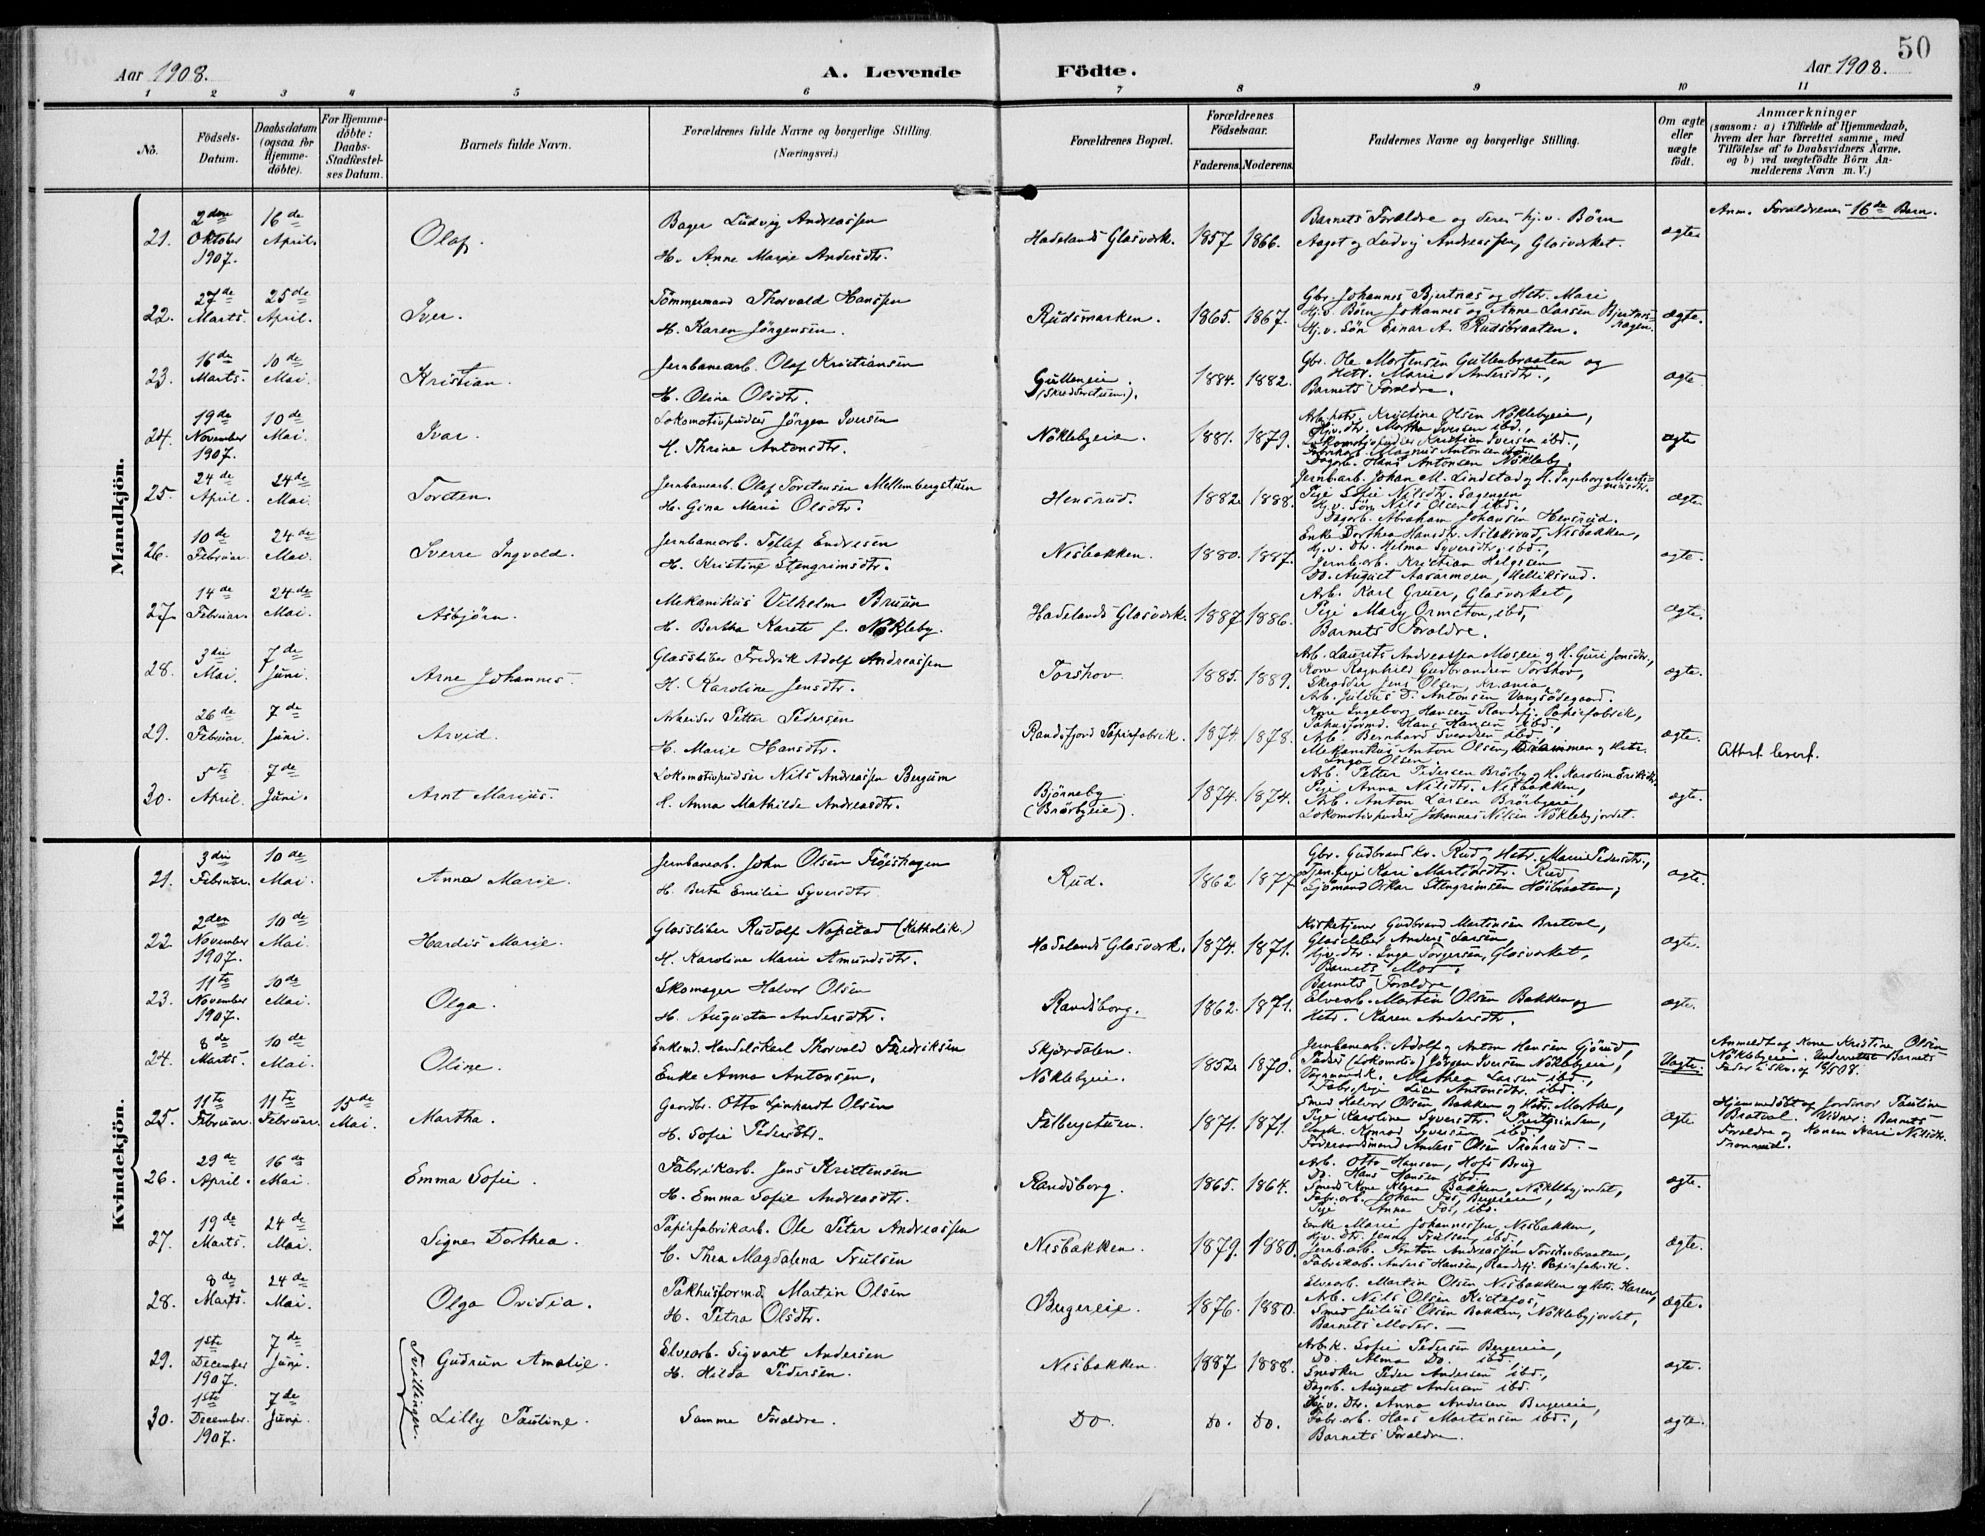 50
Aar 1908. A. Levende Födte. Aar 1908.
1 2 3 4 5 6 7 8 9 10 11
No.
Födsels-Datum.
Daabsdatum (ogsaa for Hjemme-döbte).
For Hjemme-döbte: Daabs-Stadfæstel-ses Datum.
Barnets fulde Navn.
Forældrenes fulde Navne og borgerlige Stilling.
(Næringsvei.)
Forældrenes Bopæl.
Forældrenes Födselsaar.
Faderens. Moderens.
Faddernes Navne og borgerlige Stilling.
Om ægte eller uægte födt.
Anmærkninger
(saasom: a) i Tilfælde af Hjemmedaab,
hvem der har forrettet samme, med
Tilföielse af to Daabsvidners Navne,
og b) ved uægtefödte Börn An-
melderens Navn m. V.)
Mandkjön.
21. 2den Oktober 1907. 16de April. Olaf. Bager Ludvig Andreassen
H. Anne Marie Andersdtr. Hadelands Glasværk. 1857 1866. Barnets Forældre og deres hj.v. Börn
Aagot og Ludvig Andreassen, Glasværket. ægte Anm. Forældrenes 16de Barn.
22. 27de Marts. 25de April. Iver. Tömmermand Thorvald Hanssen
H. Karen Jörgensen. Rudsmarken. 1865. 1867. Gbr. Johannes Bjertnæs og Hstr. Mari
Hj.v. Börn Johannes og Anna Larsen Bjertnæs-hagen.
Hj.v. Sön Einar A. Rudsbraaten. ægte.
23. 16de Marts. 10de Mai. Kristian. Jernbanearb. Olaf Kristiansen
H. Olina Olsdtr. Gulleneie. 1884. 1882. Gbr. Ole Mortensen Gullenbraaten og
Hstr. Marie Andersdtr.,
Barnets Forældre. ægte
24. 19de November 1907. 10de Mai. Ivar. Lokomotivpudser Jörgen Iversen
H. Thrine Antonsdtr. Nöklebyeie. 1881. 1879. Kristine Olsen Nöklebyeie,
Hj.v. dtr. Martha Iversen ibd.,
Lokomotivpudser Kristian Iversen ibd.,
Fabrikarb. Magnus Antonsen ibd.
Dagarb. Hans Antonsen Nökleby. ægte
25. 24de April. 24de Mai. Torsten. Jernbanearb. Olaf Torstensen Mellembergstuen
H. Gina Marie Olsdtr. Hensrud. 1882 1888. Jernb.arb. Johan M. Lindstad og H. Ingeborg
Pige Sofie Nilsdtr. Sagengen
Hj.v. Sön Nils Olsen ibd.,
Dagarb. Abraham Johansen Hensrud. ægte.
26. 10de Februar. 24de Mai. Sverre Ingvald. Jernbanearb. Tellef Endresen
H. Kristine Stengrimsdtr. Nesbakken. 1880. 1887. Enke Dorthea Hansdtr. Aslaksrud, Nesbakken,
Hj.v. Dtr. Helma Syversdtr. ibd.,
Jernb.arb. Kristian Helgesen
Do. August Aasarmoen, Mælliksrud. ægte.
27. 14de Februar. 24de Mai. Asbjörn. Mekanikus Vilhelm Bruun
H. Bertha Karete f. Nökleby. Hadelands Glasværk. 1887. 1886. Arb. Karl Gruer, Glasværket,
Pige Mary Ormeton, ibd,
Barnets Forældre. ægte.
28. 3die Mai. 7de Juni. Arne Johannes. Glassliber Fredrik Adolf Andreassen
H. Karoline Jensdtr. Torshov. 1885. 1889. Arb. Laurits Andreassen Moseie og H. Guri Jonsdtr.,
Kone Ragnhild Gudbrandsen Torshov,
Skrædder Jens Olsen, Kr.ania,
Arb. Julius D. Antonsen Vangsödegaard. ægte.
29. 26de Februar. 7de Juni. Arvid. Arbeider Petter Pedersen
H. Marie Hansdtr. Randsfjord Papirfabrik. 1874. 1878. Kone Ingeborg Hansen Randsfj. Papirfabrik,
Pakhusformd. Hans Hansen ibd,
Arb. Bernhard Svendsen ibd,
Mekanikus Anton Olsen, Drammen og Hstr.
Inga Olsen. ægte. Attest levert.
30. 5te April. 7de Juni. Arnt Marius. Lokomotivpudser Nils Andreassen Bergum
H. Anna Mathilde Andreasdtr. Bjørneby (Brørbyeie). 1874. 1874. Arb. Petter Pedersen Brørby og H. Karoline Eriksdtr.
Pige Anna Nilsdtr. Nesbakken,
Arb. Anton Larsen Brörbyeie,
Lokomotivpudser Johannes Nilsen Nöklebyjordet. ægte.
Kvindekjön.
21. 3die Februar. 10de Mai. Anna Marie. Jernbanearb. John Olsen Flöishagen
H. Berte Emilie Syversdtr. Rud. 1862 1877 Gbr. Gudbrand Kr. Rud og Hstr. Marie Pedersdtr.,
Tjen.pige Kari Martinsdtr. Rud,
Sjömand Oskar Stengrimsen Höibraaten, ægte.
22. 2den November 1907. 10de Mai. Hardis Marie. Glassliber Rudolf Napstad (Katholik.)
H. Karoline Marie Amundsdtr. Hadelands Glasværk. 1874. 1871. Kirketjener Gudbrand Martinsen Bratval,
Glassliber Anders Larsen,
Hj.v. dtr. Inga Torgersen, Glasværket,
Barnets Mor. ægte.
23. 11te November 1907. 10de Mai. Olga. Skomager Halvor Olsen
H. Augusta Andersdtr. Randsborg. 1862. 1871. Barnets Forældre,
Elvearb. Martin Olsen Bakken og
Hstr. Karen Andersdtr. ægte.
24. 8de Marts. 10de Mai. Oline. Enkemd. Handelskarl Thorvald Fredriksen
Enke Anna Antonsen. Skjærdalen.
Nöklebyeie. 1852. 1870. Jernbanearb. Adolf og Anton Hansen Gjörud,
Puds. (Lokomotiv) Jörgen Iversen Nöklebyeie,
Mathea Larsen ibd.,
Fabr.pige Lise Antonsdtr. ibd. Uægte. Anmeldt af Kone Kristine Olsen
Nöklebyeie. Underrettet Barnets
Fader
25. 11te Februar. 11te Februar. 15de Mai. Martha. Gaardbr. Otto Linhardt Olsen
H. Sofie Pedersdtr. Falbergstuen. 1871. 1871. Smed Halvor Olsen Bakken og Hstr. Marthe,
Pige Karoline Syversdtr.
Ungk. Konrad Syversen ibd.,
Anders Olsen ægte Hjemmedöbt af Jordmor Pauline
Bratval. Vidner: Barnets
Forældre og Konen Kari Nilsdtr.
26. 29de April. 16de Mai. Emma Sofie. Fabrikarb. Jens Kristensen
H. Emma Sofie Andreasdtr. Randsborg. 1865. 1864. Arb. Otto Hansen, Hofs Brug
Do. Hans Hansen ibd.
Smeds Kone Klara Bakken, Nöklebyjordet,
Fabr.arb. Johan Fos, Bergereie,
Pige Anna Fos, ibd. ægte.
27. 19de Marts. 24de Mai. Signe Dorthea. Papirfabrikarb. Ole Peter Andreassen
H. Thea Magdalena Truelsen Nesbakken. 1879. 1880. Enke Marie Johannessen, Nesbakken,
Hj.v. Dtr. Jenny Truelsen, ibd.,
Jernb.arb. Anton Andreassen Torshovbraaten,
Fabrikarb. Anders Hansen, Randsfj. Papirfabrik. ægte.
28. 8de Marts. 24de Mai. Olga Ovidia. Pakhusformd. Martin Olsen
H. Petra Olsdtr. Bergereie. 1876. 1880. Elvearb. Martin Olsen Nesbakken og Hstr. Karen,
Arb. Nils Olsen Kistefos,
Smed Julius Olsen Bakken, Nöklebyjordet,
Barnets Moder. ægte.
Tvillinger.
29. 1ste December 1907. 7de Juni. Gudrun Amalie. Elvearb. Sigvart Andersen
H. Hilda Pedersen. Nesbakken. 1887 1888. Arb.k. Sofie Pedersen Bergereie,
Do. Alma Do. ibd.
Snedker Peder Andersen ibd.,
Dagarb. August Andersen ibd. ægte.
30. 1ste December 1907. 7de Juni. Lilly Pauline. Samme Forældre. Do. Do. Do. Hj.v. Dtr. Anna Andersen Bergereie,
Fabr.arb. Hans Martinsen ibd.,
Barnets Forældre. ægte.